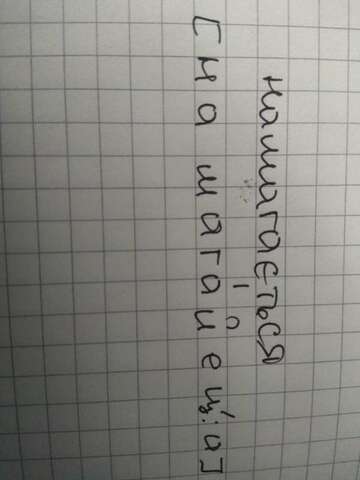 намагається
[на магайец':а]